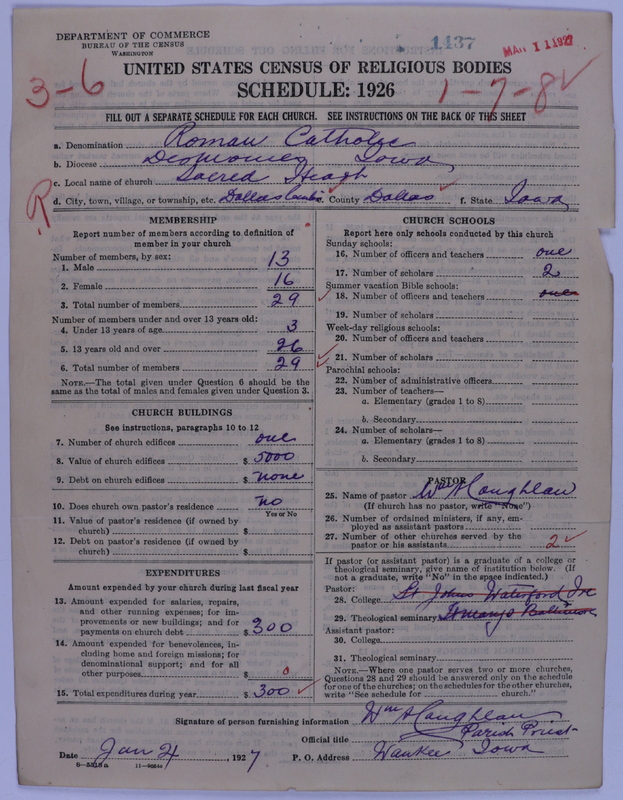 DEPARTMENT OF COMMERCE
BUREAU OF THE CENSUS
WASHINGTON
1437
MAR 11 1927
UNITED STATES CENSUS OF RELIGIOUS BODIES
3-6
SCHEDULE: 1926
1-7-8
FILL OUT A SEPARATE SCHEDULE FOR EACH CHURCH. SEE INSTRUCTIONS ON THE BACK OF THIS SHEET
a. Denomination Roman Catholic
b. Diocese Desmoines Iowa
c. Local name of church Sacred Heart
R
d. City, town, village, or township, etc. Dallas County Dallas f. State Iowa
MEMBERSHIP
Report number of members according to definition of
member in your church
Number of members, by sex:
1. Male 13
2. Female 16
3. Total number of members 29
Number of members under and over 13 years old:
4. Under 13 years of age 3
5. 13 years old and over 26
6. Total number of members 29
NOTE.—The total given under Question 6 should be
same as the total of males and females given under Question 3.
CHURCH BUILDINGS
See instructions, paragraphs 10 to 12
7. Number of church edifices one
8. Value of church edifices $ 5000
9. Debt on church edifices $ none
10. Does church own pastor's residence no
Yes or No
11. Value of pastor's residence (if owned by
church) $
12. Debt on pastor's residence (if owned by
church) $
EXPENDITURES
Amount expended by your church during last fiscal year
13. Amount expended for salaries, repairs,
and other running expenses; for im-
provements or new buildings; and for
payments on church debt $ 300
14. Amount expended for benevolences, in-
cluding home and foreign missions; for
denominational support; and for all
other purposes $ 0
15. Total expenditures during year $ 300
CHURCH SCHOOLS
Report here only schools conducted by this church
Sunday schools:
16. Number of officers and teachers one
17. Number of scholars 2
Summer vacation Bible schools:
18. Number of officers and teachers one
19. Number of scholars
Week-day religious schools:
20. Number of officers and teachers
21. Number of scholars
Parochial schools:
22. Number of administrative officers
23. Number of teachers—
a. Elementary (grades 1 to 8)
b. Secondary
24. Number of scholars—
a. Elementary (grades 1 to 8)
b. Secondary
PASTOR
25. Name of pastor Wm A Coughlan
(If church has no pastor, write "None")
26. Number of ordained ministers, if any, em-
ployed as assistant pastors
27. Number of other churches served by the
pastor or his assistants 2
If pastor (or assistant pastor) is a graduate of a college or
theological seminary, give name of institution below. (If
not a graduate, write "No" in the space indicated.)
Pastor:
28. College St Johns Waterford Ire
29. Theological seminary St Marys Baltimore
Assistant pastor:
30. College
31. Theological seminary
NOTE.—Where one pastor serves two or more churches,
Questions 28 and 29 should be answered only on the schedule
for one of the churches; on the schedules for the other churches,
write "See schedule for church."
Signature of person furnishing information Wm A Coughlan
Official title Parish Priest
Date Jan 4, 1927 P. O. Address Waukee Iowa